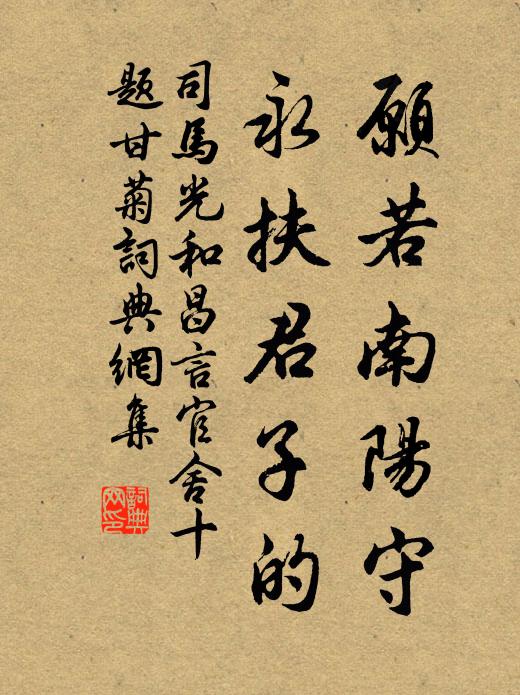 願若南陽守
永扶君子的
司馬光和昌言官舍十
題甘菊詞典網集
詞典
网印